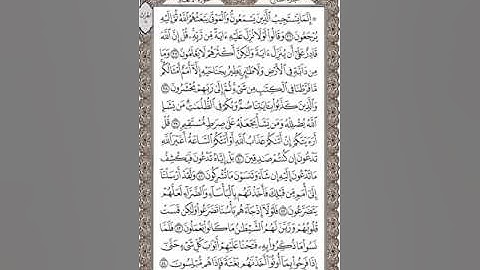 ۞ إِنَّمَا يَسْتَجِيبُ ٱلَّذِينَ يَسْمَعُونَۘ وَٱلْمَوْتَىٰ يَبْعَثُهُمُ ٱللَّهُ ثُمَّ إِلَيْهِ
يُرْجَعُونَ ٣٦ وَقَالُوا۟ لَوْلَا نُزِّلَ عَلَيْهِ ءَايَةٌ مِّن رَّبِّهِۦۚ قُلْ إِنَّ ٱللَّهَ
قَادِرٌ عَلَىٰٓ أَن يُنَزِّلَ ءَايَةً وَلَٰكِنَّ أَكْثَرَهُمْ لَا يَعْلَمُونَ ٣٧ وَمَا
مِن دَآبَّةٍ فِى ٱلْأَرْضِ وَلَا طَٰٓئِرٍ يَطِيرُ بِجَنَاحَيْهِ إِلَّآ أُمَمٌ أَمْثَالُكُمۚ
مَّا فَرَّطْنَا فِى ٱلْكِتَٰبِ مِن شَىْءٍۚ ثُمَّ إِلَىٰ رَبِّهِمْ يُحْشَرُونَ ٣٨
وَٱلَّذِينَ كَذَّبُوا۟ بِـَٔايَٰتِنَا صُمٌّ وَبُكْمٌ فِى ٱلظُّلُمَٰتِۗ مَن يَشَإِ
ٱللَّهُ يُضْلِلْهُ وَمَن يَشَأْ يَجْعَلْهُ عَلَىٰ صِرَٰطٍ مُّسْتَقِيمٍ ٣٩ قُلْ
أَرَءَيْتَكُمْ إِنْ أَتَىٰكُمْ عَذَابُ ٱللَّهِ أَوْ أَتَتْكُمُ ٱلسَّاعَةُ أَغَيْرَ ٱللَّهِ
تَدْعُونَ إِن كُنتُمْ صَٰدِقِينَ ٤٠ بَلْ إِيَّاهُ تَدْعُونَ فَيَكْشِفُ
مَا تَدْعُونَ إِلَيْهِ إِن شَآءَ وَتَنسَوْنَ مَا تُشْرِكُونَ ٤١ وَلَقَدْ أَرْسَلْنَآ
إِلَىٰٓ أُمَمٍ مِّن قَبْلِكَ فَأَخَذْنَٰهُم بِٱلْبَأْسَآءِ وَٱلضَّرَّآءِ لَعَلَّهُمْ
يَتَضَرَّعُونَ ٤٢ فَلَوْلَآ إِذْ جَآءَهُم بَأْسُنَا تَضَرَّعُوا۟ وَلَٰكِن قَسَتْ
قُلُوبُهُمْ وَزَيَّنَ لَهُمُ ٱلشَّيْطَٰنُ مَا كَانُوا۟ يَعْمَلُونَ ٤٣ فَلَمَّا
نَسُوا۟ مَا ذُكِّرُوا۟ بِهِۦ فَتَحْنَا عَلَيْهِمْ أَبْوَٰبَ كُلِّ شَىْءٍ حَتَّىٰٓ
إِذَا فَرِحُوا۟ بِمَآ أُوتُوٓا۟ أَخَذْنَٰهُم بَغْتَةً فَإِذَا هُم مُّبْلِسُونَ ٤٤